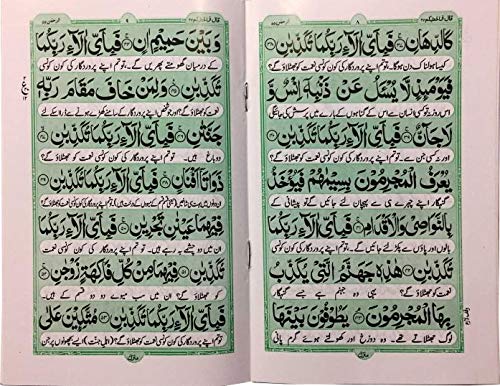 قال فما خطبکم ۲۷ ۸ الرحمن ۵۵
كَالدِّهَانِ ﴿۳۷﴾ فَبِاَيِّ اٰلَآءِ رَبِّكُمَا تُكَذِّبٰنِ ﴿۳۸﴾
کیسا ہولناک دن ہوگا۔ تو تم اپنے پروردگار کی کون کونسی نعمت کو جھٹلاؤ گے؟
فَيَوْمَئِذٍ لَّا يُسْـَٔلُ عَنْ ذَنْۢبِهٖٓ اِنْسٌ وَّ
اس روز نہ تو کسی انسان سے اس کے گناہوں کے بارے میں پرسش کی جائیگی
لَا جَآنٌّ ﴿۳۹﴾ فَبِاَيِّ اٰلَآءِ رَبِّكُمَا تُكَذِّبٰنِ ﴿۴۰﴾
اور نہ کسی جن سے۔ تو تم اپنے پروردگار کی کون کونسی نعمت کو جھٹلاؤ گے؟
يُعْرَفُ الْمُجْرِمُوْنَ بِسِيْمٰهُمْ فَيُؤْخَذُ
گنہگار اپنے چہرے ہی سے پہچان لئے جائیں گے تو پیشانی کے
بِالنَّوَاصِيْ وَالْاَقْدَامِ ﴿۴۱﴾ فَبِاَيِّ اٰلَآءِ رَبِّكُمَا
بالوں اور پاؤں سے پکڑ لئے جائیں گے۔ تو تم اپنے پروردگار کی کون کونسی نعمت
تُكَذِّبٰنِ ﴿۴۲﴾ هٰذِهٖ جَهَنَّمُ الَّتِيْ يُكَذِّبُ
کو جھٹلاؤ گے؟ یہی وہ جہنم ہے جسے گنہگار
بِهَا الْمُجْرِمُوْنَ ﴿۴۳﴾ يَطُوْفُوْنَ بَيْنَهَا
لوگ جھٹلاتے تھے۔ وہ دوزخ اور کھولتے ہوئے گرم پانی
قال فما خطبکم ۲۷ ۹ الرحمن ۵۵
وَ بَيْنَ حَمِيْمٍ اٰنٍ ﴿۴۴﴾ فَبِاَيِّ اٰلَآءِ رَبِّكُمَا
کے درمیان گھومتے پھریں گے۔ تو تم اپنے پروردگار کی کون کونسی
تُكَذِّبٰنِ ﴿۴۵﴾ وَ لِمَنْ خَافَ مَقَامَ رَبِّهٖ
نعمت کو جھٹلاؤ گے؟ اور جو شخص اپنے پروردگار کے سامنے کھڑے ہونے سے ڈرا اسکے لئے
جَنَّتٰنِ ﴿۴۶﴾ فَبِاَيِّ اٰلَآءِ رَبِّكُمَا تُكَذِّبٰنِ ﴿۴۷﴾
دو باغ ہیں۔ تو تم اپنے پروردگار کی کون کونسی نعمت کو جھٹلاؤ گے؟
ذَوَاتَآ اَفْنَانٍ ﴿۴۸﴾ فَبِاَيِّ اٰلَآءِ رَبِّكُمَا تُكَذِّبٰنِ ﴿۴۹﴾
تو تم اپنے پروردگار کی کون کونسی نعمت کو جھٹلاؤ گے؟
فِيْهِمَا عَيْنٰنِ تَجْرِيٰنِ ﴿۵۰﴾ فَبِاَيِّ اٰلَآءِ رَبِّكُمَا
ان میں دو چشمے بہہ رہے ہیں۔ تو تم اپنے پروردگار کی کون کونسی نعمت
تُكَذِّبٰنِ ﴿۵۱﴾ فِيْهِمَا مِنْ كُلِّ فَاكِهَةٍ زَوْجٰنِ ﴿۵۲﴾
کو جھٹلاؤ گے؟ ان میں سب میوے دو دو قسم کے ہیں۔
فَبِاَيِّ اٰلَآءِ رَبِّكُمَا تُكَذِّبٰنِ ﴿۵۳﴾ مُتَّكِـِٕيْنَ عَلٰى
تو تم اپنے پروردگار کی کون کونسی نعمت کو جھٹلاؤ گے؟ (اہل جنت) ایسے بچھونوں پر جن